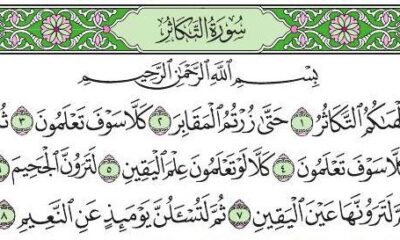 سُورَةُ التَّكَاثُرِ
بِسْمِ اللَّهِ الرَّحْمَٰنِ الرَّحِيمِ
لْهَىٰكُمُ التَّكَاثُرُ ١ حَتَّىٰ زُرْتُمُ الْمَقَابِرَ ٢ كَلَّا سَوْفَ تَعْلَمُونَ ٣ ثُ
كَلَّا سَوْفَ تَعْلَمُونَ ٤ كَلَّا لَوْ تَعْلَمُونَ عِلْمَ الْيَقِينِ ٥ لَتَرَوُنَّ الْجَحِيمَ
لَتَرَوُنَّهَا عَيْنَ الْيَقِينِ ٧ ثُمَّ لَتُسْـَٔلُنَّ يَوْمَئِذٍ عَنِ النَّعِيمِ ٨